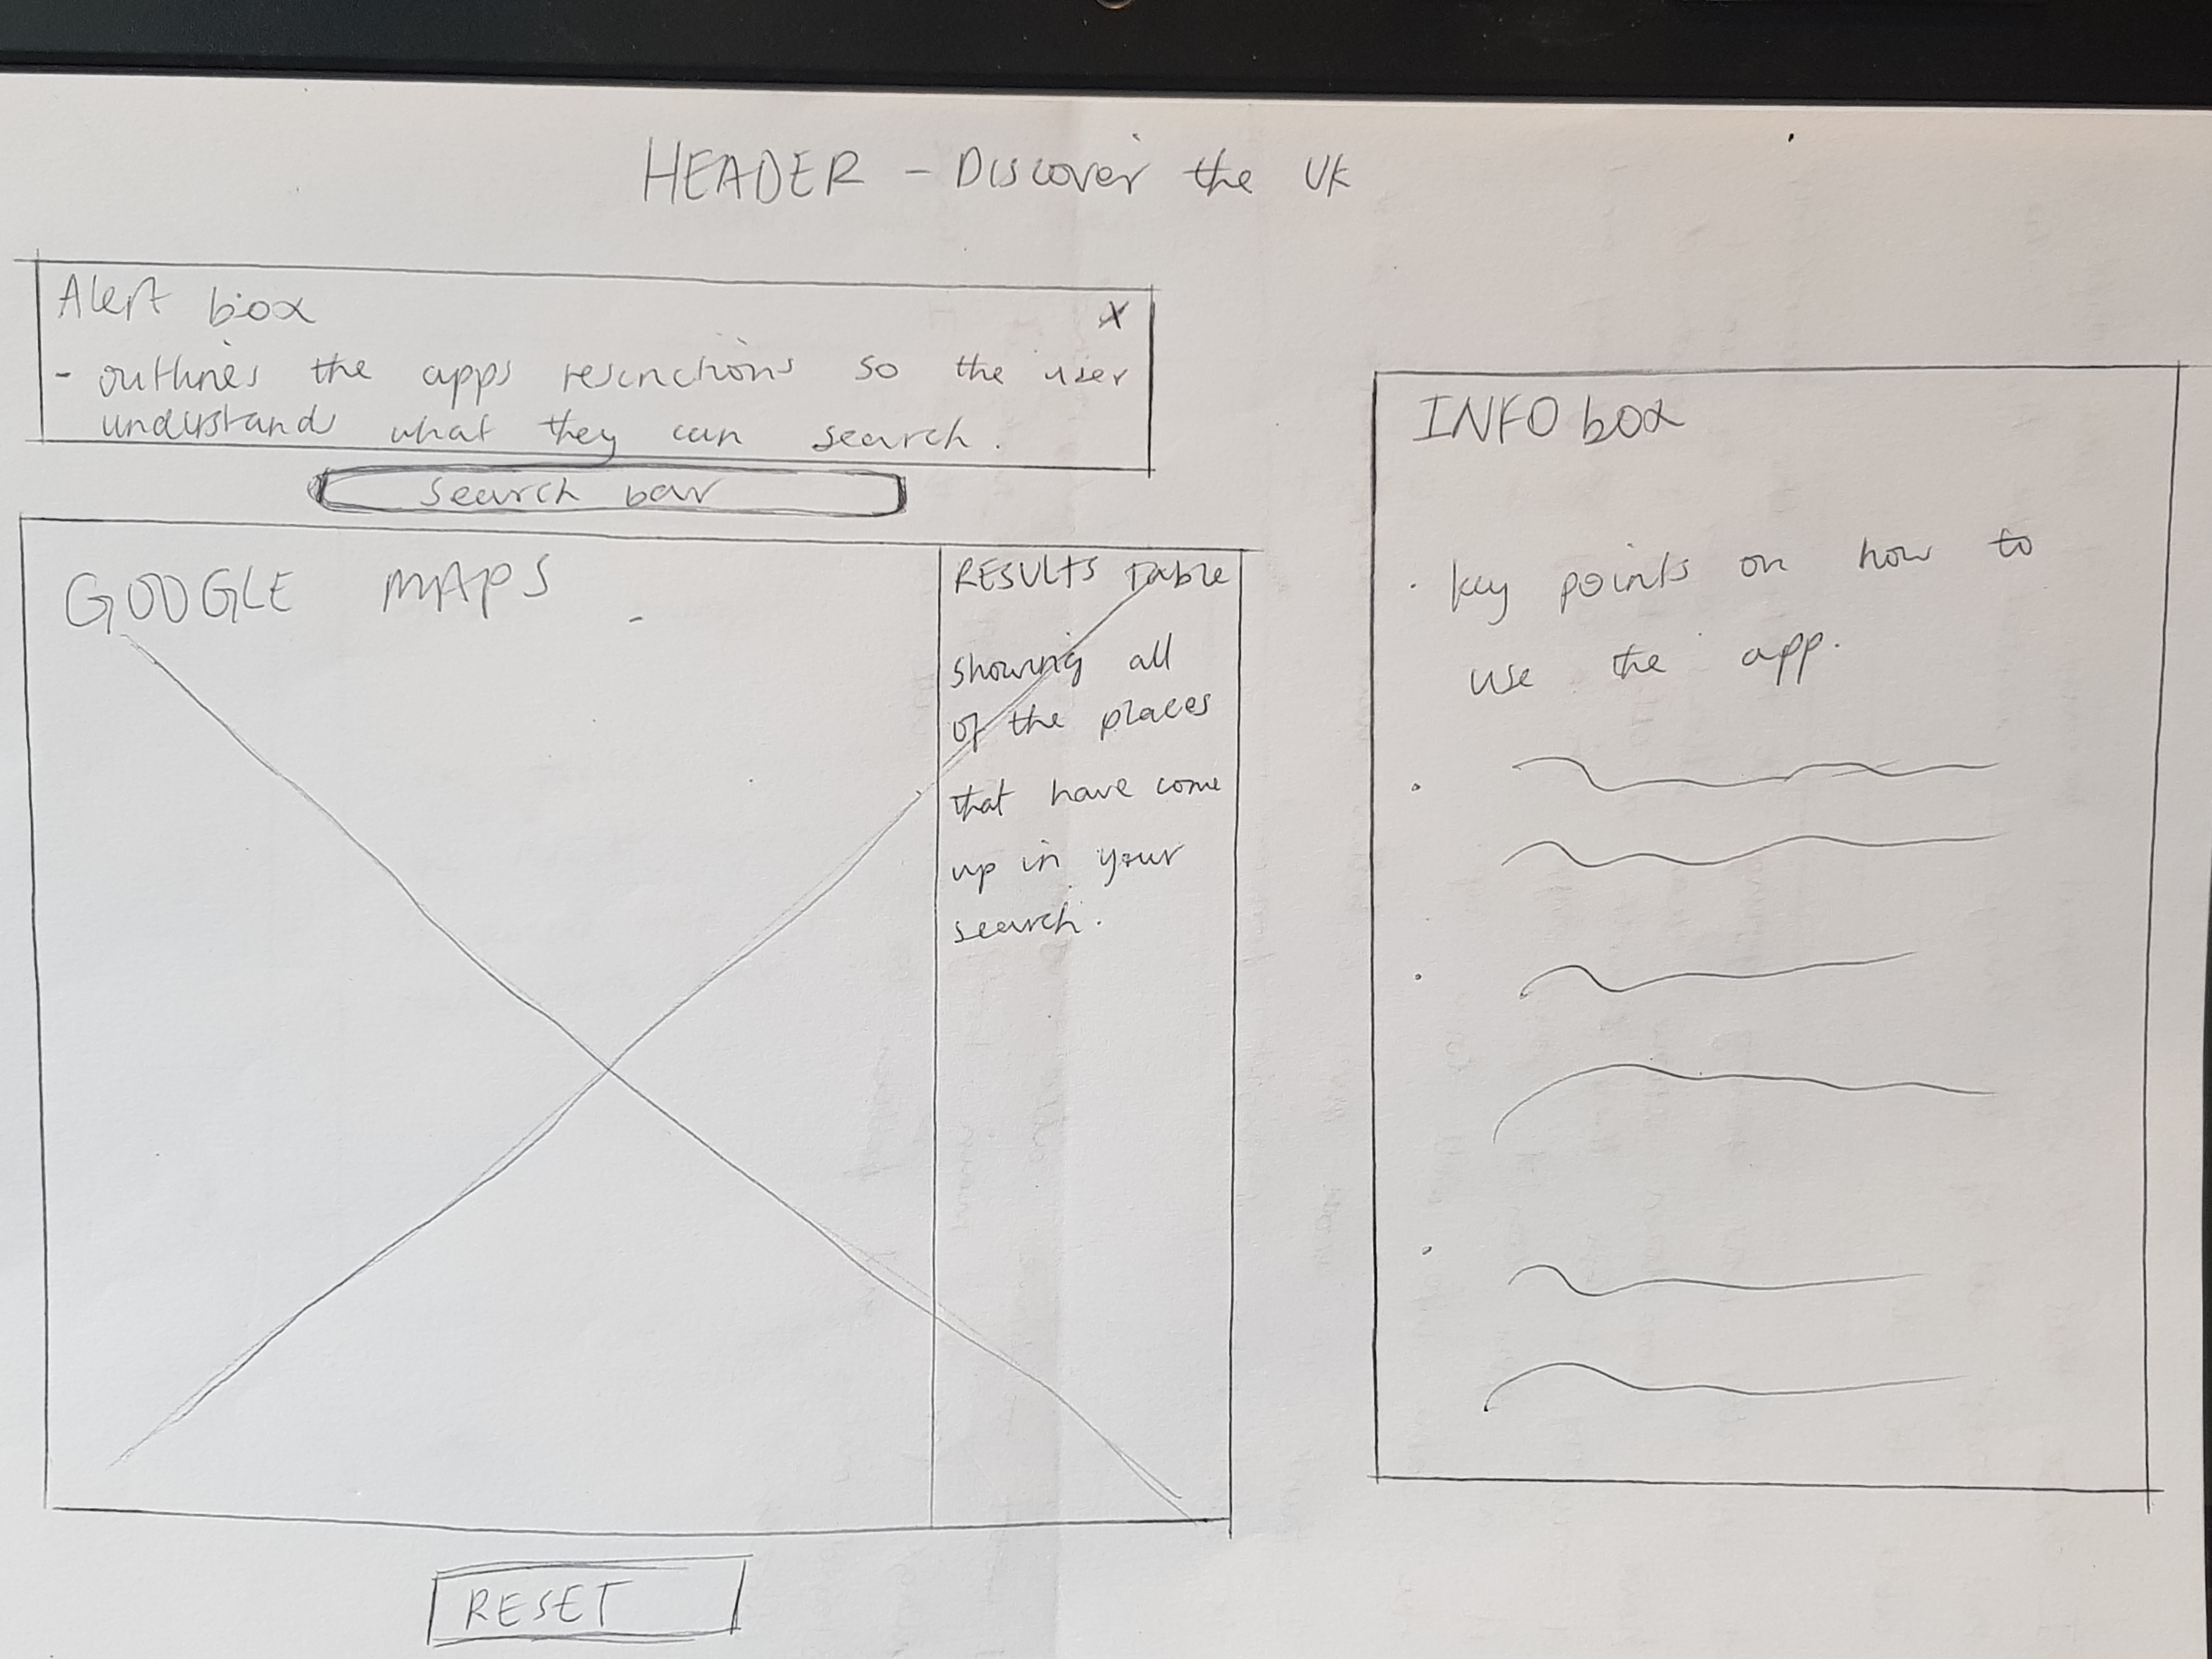 HEADER - Discover the UK
Alert box
X
- outlines the apps restrictions so the user
understands what they can search.
Search bar
GOOGLE MAPS
RESULTS Table
showing all
of the places
that have come
up in your
search.
INFO box
· key points on how to
use the app.
RESET